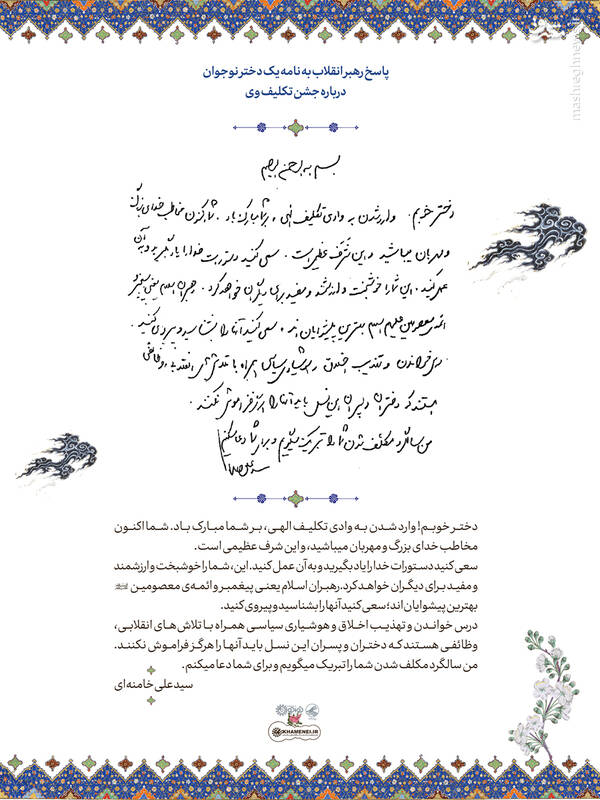 پاسخ رهبر انقلاب به نامه یک دختر نوجوان
درباره جشن تکلیف وی
دختر خوبم. وارد شدن به وادی تکلیف الهی، بر شما مبارک باد. شما کنون مخاطب خدای بزرگ
و مهربان میباشید و این شرف عظیمی است. سعی کنید دستورات خدا را یاد بگیرید و به آن
عمل کنید. این شما را خوشبخت و ارزشمند و مفید برای دیگران خواهد کرد. رهبران اسلام یعنی پیغمبر و
ائمه معصومین علیهم السلام بهترین پیشوایان اند. سعی کنید آنها را بشناسید و پیروی کنید.
درس خواندن و تهذیب اخلاق و هوشیاری سیاسی همراه با تلاش‌های انقلابی، وظائفی
هستند که دختران و پسران این نسل باید آنها را هرگز فراموش نکنند.
من سالگرد مکلف شدن شما را تبریک میگویم و برای شما دعا میکنم
دختر خوبم! وارد شدن به وادی تکلیف الهی، بر شما مبارک باد. شما اکنون
مخاطب خدای بزرگ و مهربان میباشید، و این شرف عظیمی است.
سعی کنید دستورات خدا را یاد بگیرید و به آن عمل کنید. این، شما را خوشبخت و ارزشمند
و مفید برای دیگران خواهد کرد. رهبران اسلام یعنی پیغمبر و ائمه‌ی معصومین
بهترین پیشوایان اند؛ سعی کنید آنها را بشناسید و پیروی کنید.
درس خواندن و تهذیب اخلاق و هوشیاری سیاسی همراه با تلاش‌های انقلابی،
وظائفی هستند که دختران و پسران این نسل باید آنها را هرگز فراموش نکنند.
من سالگرد مکلف شدن شما را تبریک میگویم و برای شما دعا میکنم.
سید علی خامنه‌ای
KHAMENEI.IR